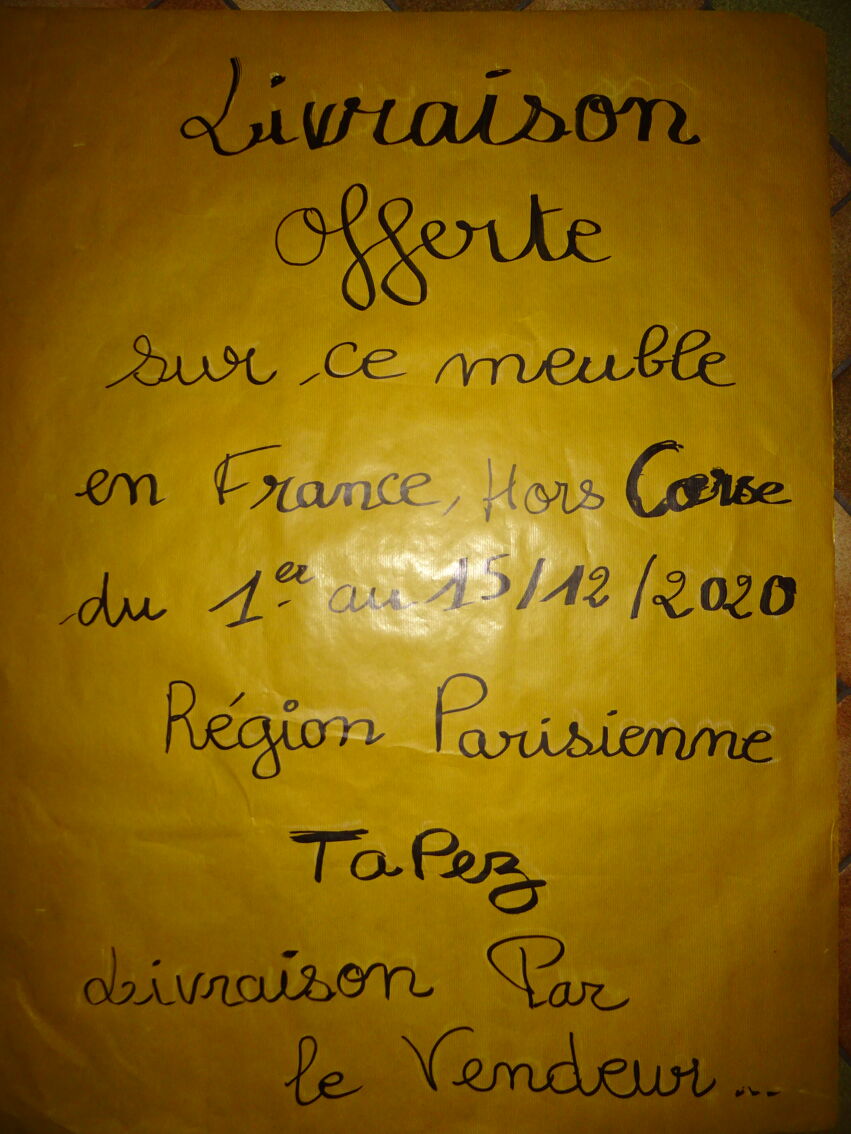 Livraison
offerte
sur ce meuble
en France, Hors Corse
du 1er au 15/12/2020
Région Parisienne
TaPez
Livraison Par
le Vendeur...